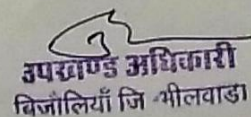 उपखण्ड अधिकारी
बिजोलियाँ जि भीलवाडा